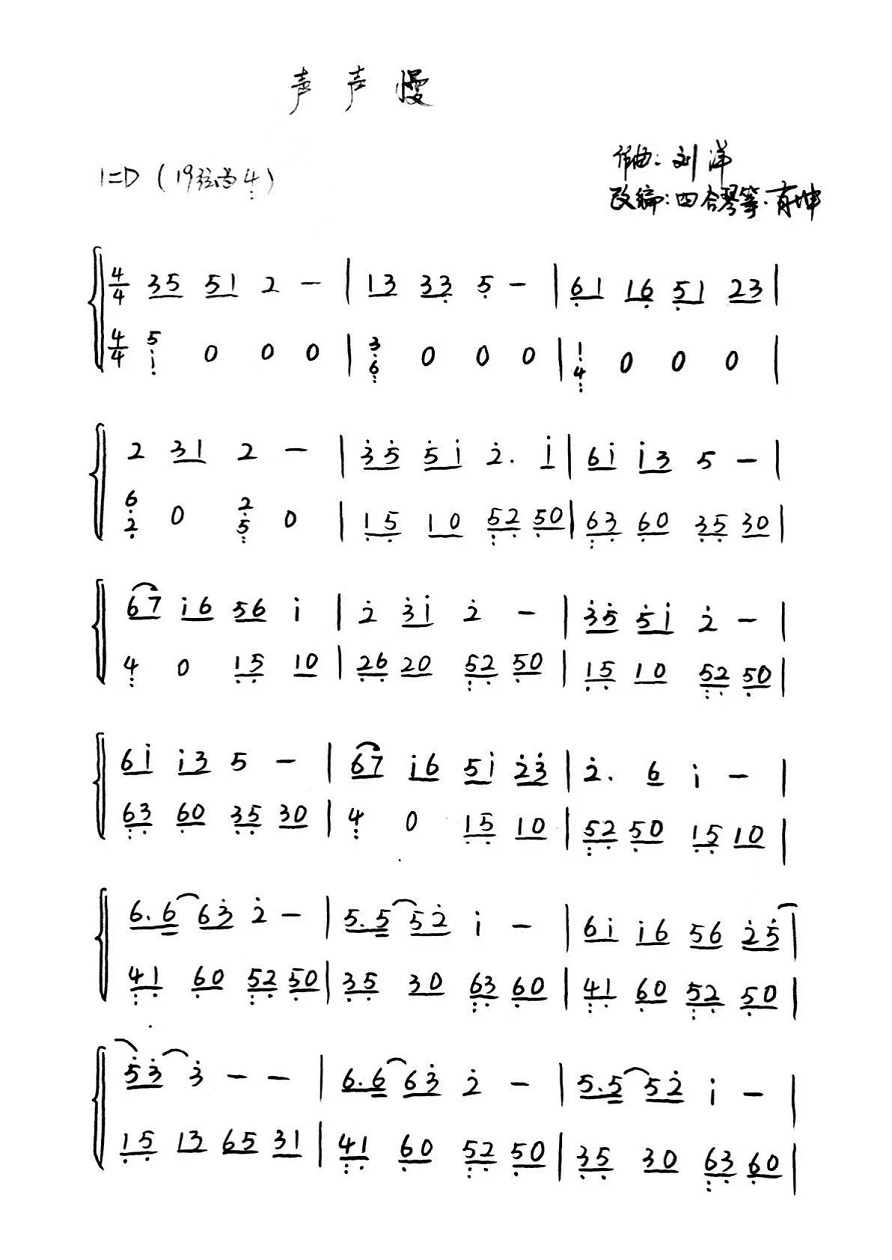 声声慢
1=D（19弦为4̣）
作曲：刘洋
改编：四合琴筝·育坤
4/4 35 51 2 — | 13 33̣ 5̣ — | 6̣1 16̣ 5̣1 23 |
4/4 5̣/1̣ 0 0 0 | 3̣/6̣̣ 0 0 0 | 1̣/4̣̣ 0 0 0 |
2 31 2 — | 3̇5̇ 5̇i 2̇. i | 6i i3 5 — |
6̣/2̣ 0 2̣/5̣̣ 0 | 1̣5̣ 10 5̣̣2̣ 5̣0 | 6̣̣3̣ 6̣0 3̣5̣ 30 |
67 i6 56 i | 2̇ 3̇i 2̇ — | 3̇5̇ 5̇i 2̇ — |
4̣̣ 0 1̣5̣ 10 | 2̣6̣ 20 5̣̣2̣ 5̣0 | 1̣5̣ 10 5̣̣2̣ 5̣0 |
6i i3 5 — | 67 i6 5i 2̇3̇ | 2̇. 6 i — |
6̣̣3̣ 6̣0 3̣5̣ 30 | 4̣̣ 0 1̣5̣ 10 | 5̣̣2̣ 5̣0 1̣5̣ 10 |
6.6 63̇ 2̇ — | 5.5 52̇ i — | 6i i6 56 2̇5̇ |
4̣̣1̣ 6̣0 5̣̣2̣ 5̣0 | 3̣5̣ 30 6̣̣3̣ 6̣0 | 4̣̣1̣ 6̣0 5̣̣2̣ 5̣0 |
5̇3̇ 3̇ — — | 6.6 63̇ 2̇ — | 5.5 52̇ i — |
1̣5̣ 13 65 31 | 4̣̣1̣ 6̣0 5̣̣2̣ 5̣0 | 3̣5̣ 30 6̣̣3̣ 6̣0 |